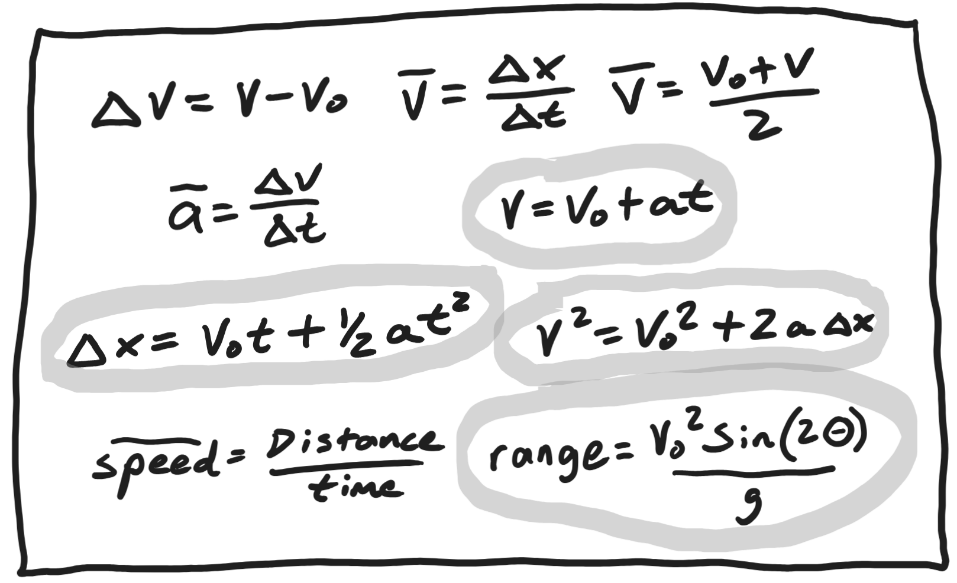 Δv = v - v₀   v̅ = Δx/Δt   v̅ = (v₀ + v)/2
a̅ = Δv/Δt   v = v₀ + at
Δx = v₀t + ½at²   v² = v₀² + 2aΔx
s̅p̅e̅e̅d̅ = Distance/time   range = v₀² sin(2θ)/g